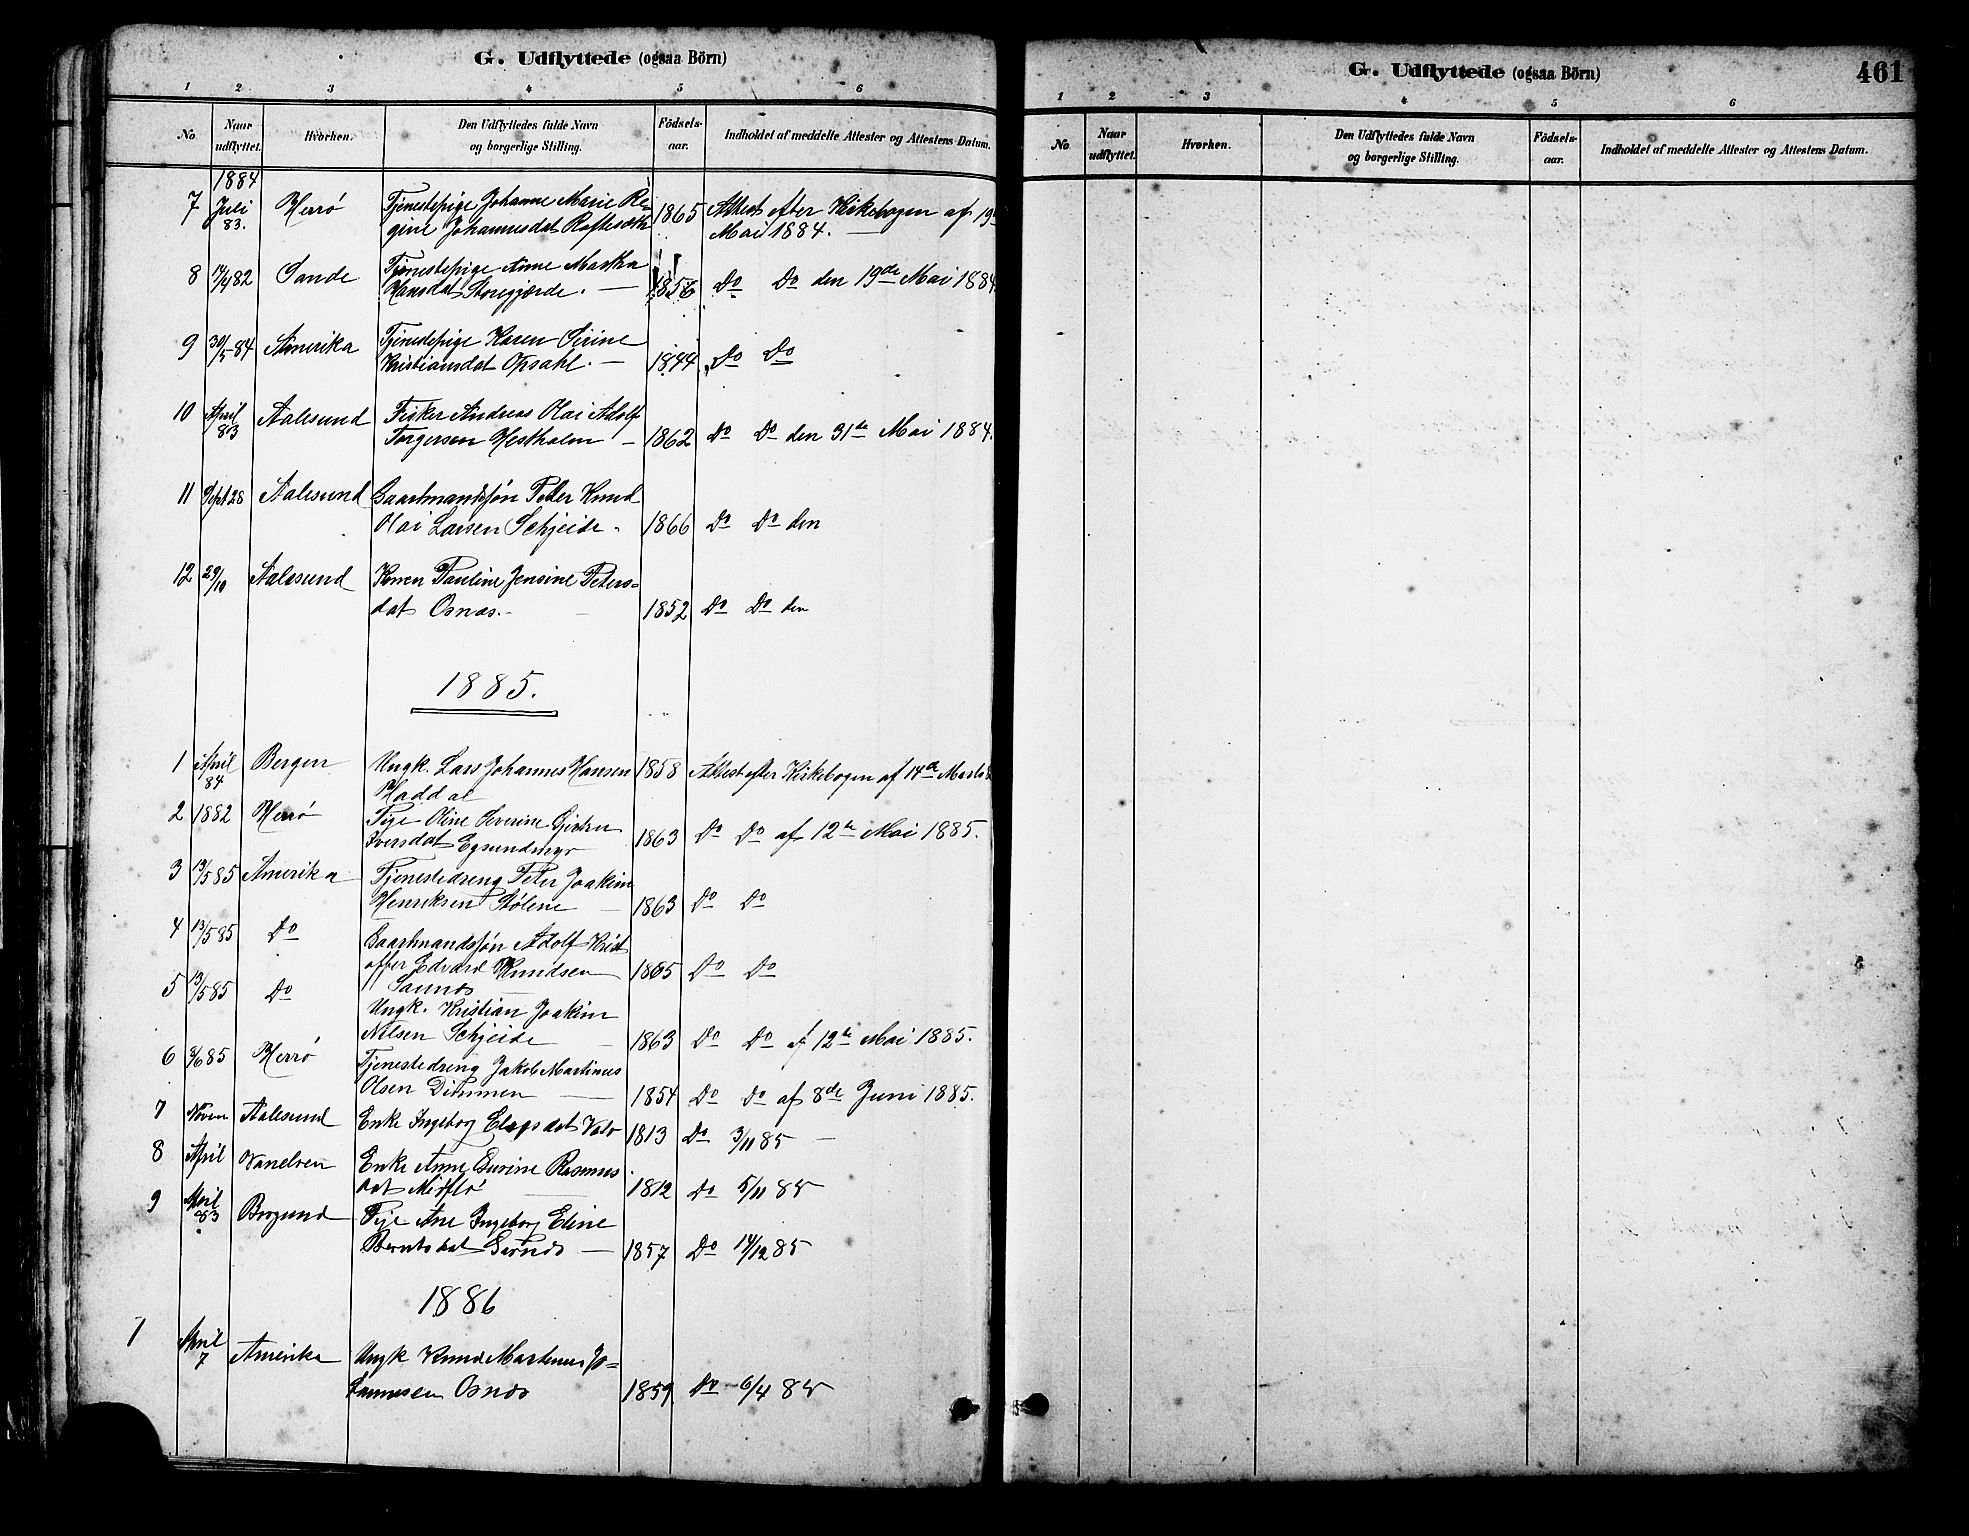 G. Udflyttede (ogsaa Börn)
1 2 3 4 5 6
No. Naar udflyttet. Hvorhen. Den Udflyttedes fulde Navn og borgerlige Stilling. Födsels-aar. Indholdet af meddelte Attester og Attestens Datum.
1884
7 Juli 83. Herrö Tjenestepige Johanne Marie Re-
gine Johannesdat 1865 Attest efter Kirkebogen af 19de
Mai 1884.
8 14/4 82 Sande Tjenestepige Anne Martha
Hansdat Storegjærde. 1856 Do Do den 19de Mai 1884
9 30/5 84 Amerika Tjenestepige Karen Sirine
Kristiansdat Opsahl. 1844 Do Do
10 April 83 Aalesund Fisker Andreas Olai Adolf
Torgersen Hestholm 1862 Do Do den 31te Mai 1884.
11 Sept 28 Aalesund Gaardmandssön Peter Knud
Olai Larsen Schjeide. 1866 Do Do den
12 29/10 Aalesund Konen Pauline Jensine Peters-
dat Osnæs. 1852 Do Do den
1885.
1 April 84 Bergen Ungk. Lars Johannes Hansen 1858 Attest efter Kirkebogen af 14de Marts
Haddal
2 1882 Herrö Pige Oline Severine
Iversdat Egsundmyr 1863 Do Do af 12te Mai 1885.
3 13/5 85 Amerika Tjenestedreng Peter Joakim
Henriksen Stölene 1863 Do Do
4 13/5 85 Do Gaardmandssön Adolf Krist
offer Edvard Knudsen 1865 Do Do
5 13/5 85 Do
Ungk. Kristian Joakim
Nilsen Schjeide 1863 Do Do af 12te Mai 1885.
6 3/6 85 Herrö Tjenestedreng Jakob Martinus
Olsen Dimmen 1854 Do Do af 8de Juni 1885.
7 Novem Aalesund Enke Ingeborg 1813 Do 3/11 85
8 April Vanelven Enke Anne Gurine Rasmus
dat Mitflö 1812 Do 5/11 85
9 April 83 Borgund Pige Ane Ingeborg Eline
Berntsdat 1857 Do 14/12 85
1886
1 April 7 Amerika Ungk Knud Martinus Jo-
hannesen Osnæs 1859 Do 6/4 85
G. Udflyttede (ogsaa Börn) 461
1 2 3 4 5 6
No. Naar udflyttet. Hvorhen. Den Udflyttedes fulde Navn og borgerlige Stilling. Födsels-aar. Indholdet af meddelte Attester og Attestens Datum.